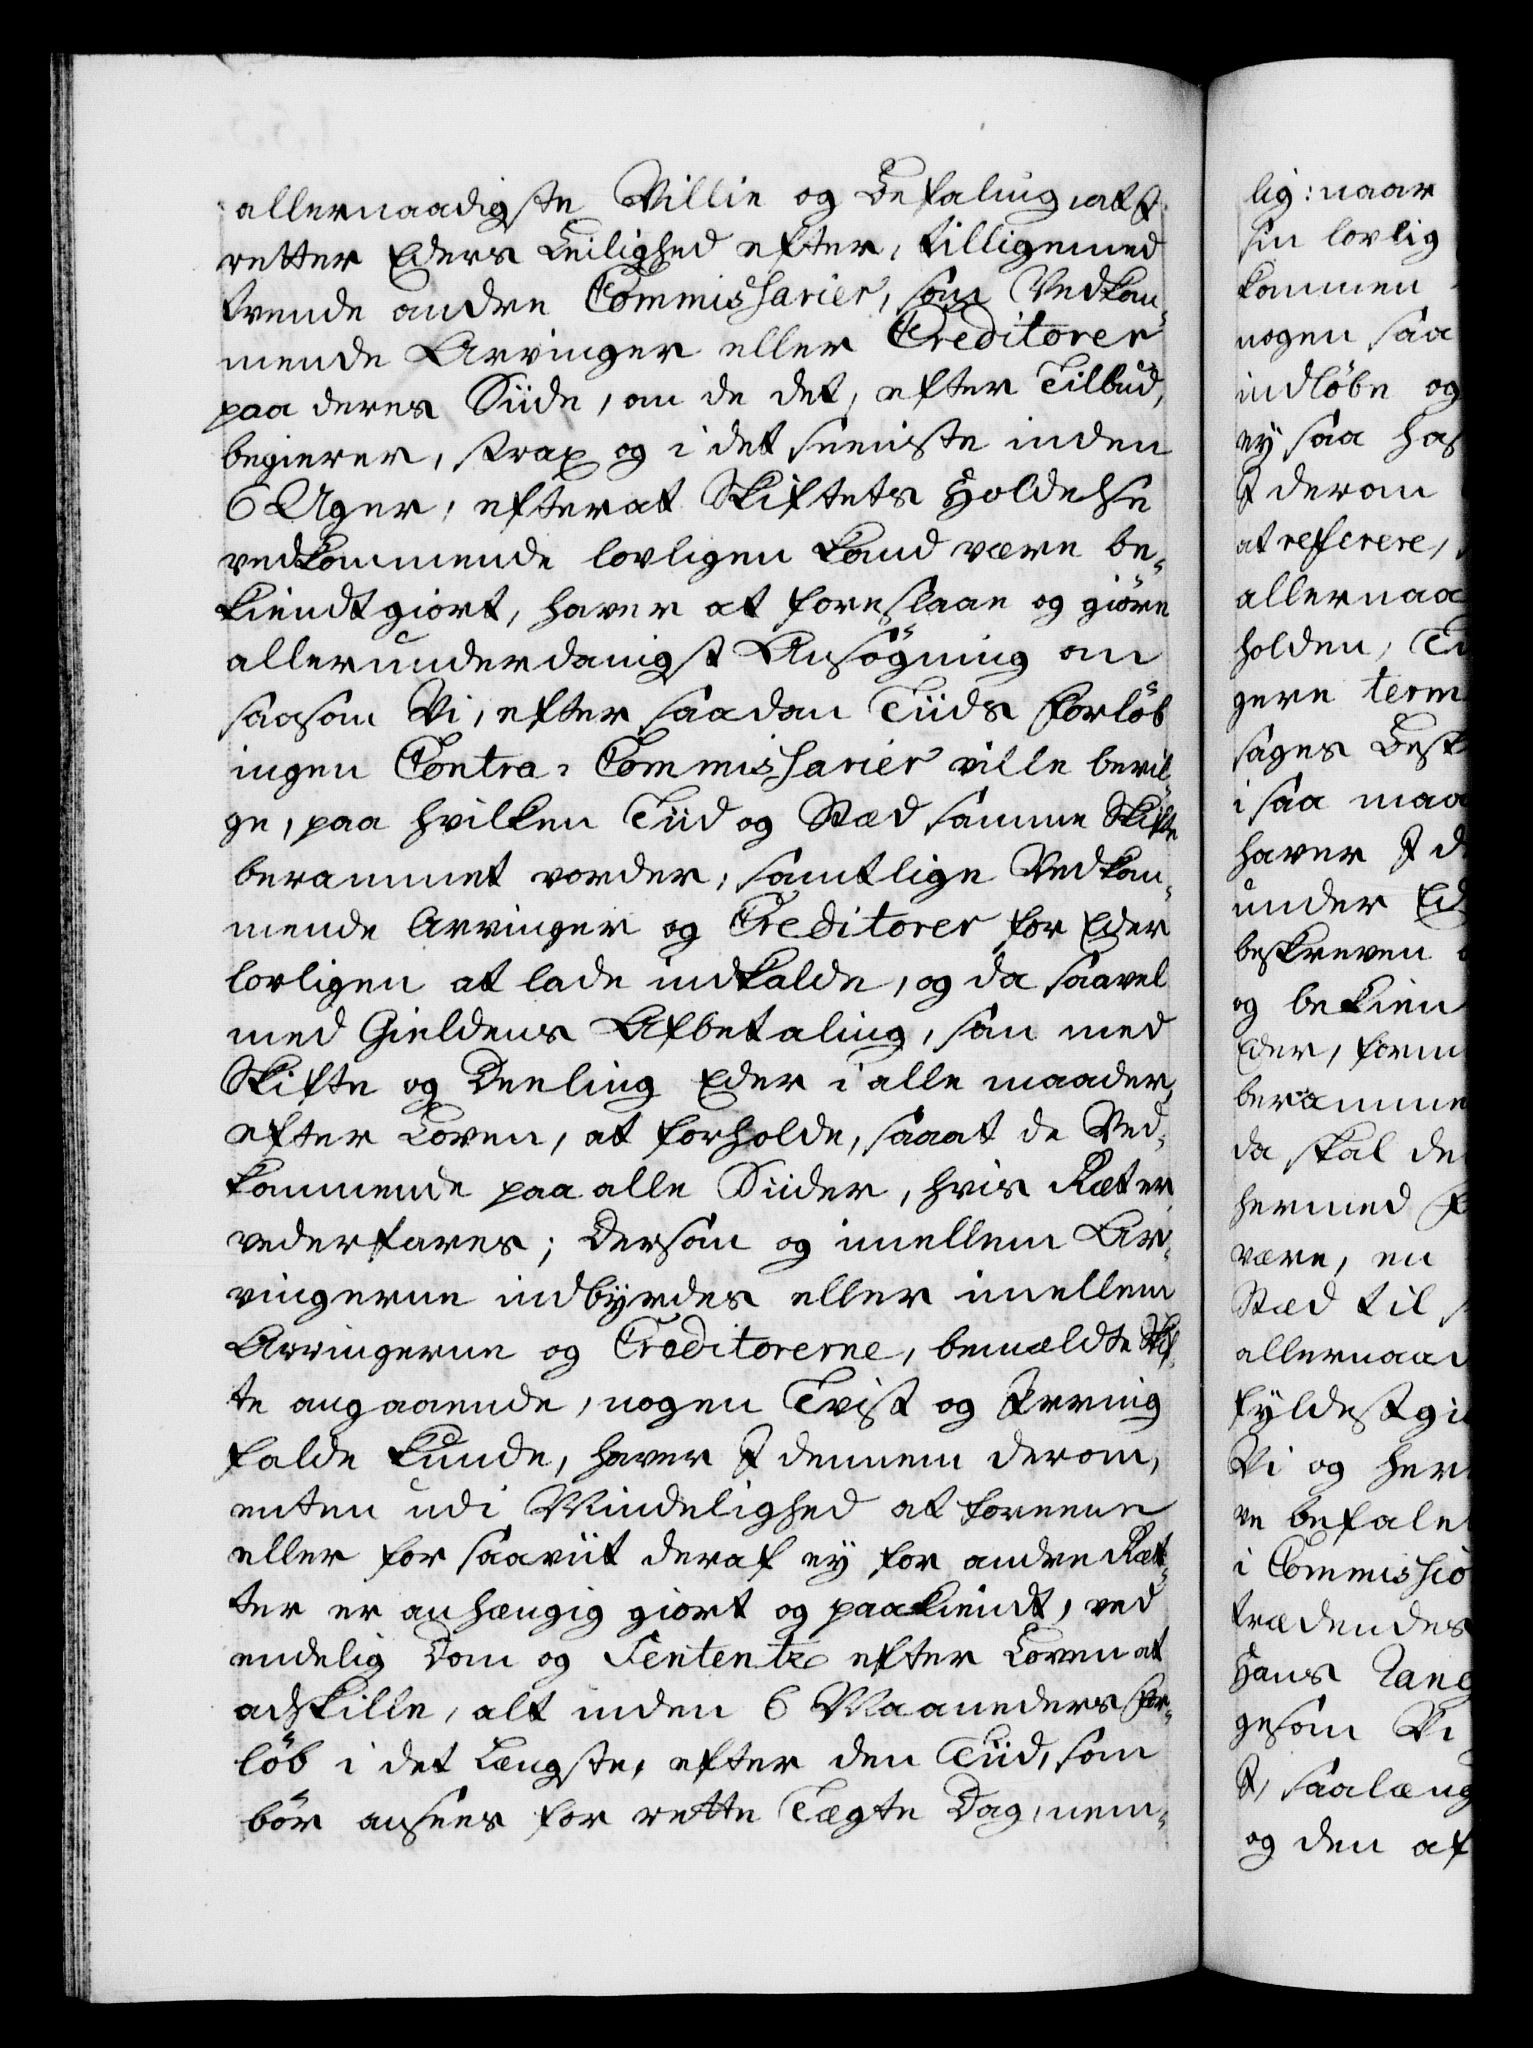 allernaadigste Villie og Befaling, at I
retter Eders Leilighed efter, tilligemed
tvende andre Commissarier, som Vedkom-
mende Arvinger eller Creditorer
paa deres Siide, om de det, efter Tilbud,
begierer, strax og i det seeniste inden
6 Uger, efterat Skiftets Holdelse
vedkommende lovligen kand være be-
kiendtgiort, haver at foreslaae og giøre
allerunderdanigst Ansøgning om
saasom Vi, efter saadan Tiids Forløb
ingen Contra-Commissarier ville bevil-
ge, paa hvilken Tiid og Stæd samme Skifte
berammet vorder, samtlige Vedkom-
mende Arvinger og Creditorer for Eder
lovligen at lade indkalde, og da saavel
med Gieldens Afbetaling, som med
Skifte og Deeling Eder i alle maader,
efter Loven, at forholde, saaat de Ved-
kommende paa alle Siider, hvis Ræt er,
vederfares; Dersom og imellem Ar-
vingerne indbyrdes eller imellem
Arvingerne og Creditorerne, bemældte Skif-
te angaaende, nogen Tvist og Irring
falde kunde, haver I dennem derom,
enten udi Mindelighed at foreene
eller for saaviit deraf ey for andre Ræt-
ter er anhængig giort og paakiendt, ved
endelig Dom og Sententz efter Loven at
adskille, alt inden 6 Maaneders For-
løb i det Længste, efter den Tiid, som
bør ansees for rette Tægte Dag, nem-
lig: naar
sin lovlig
kommen
nogen saa
indløbe og
ey saa has
I derom
at referere,
allernaa
holden,
gere term
sages Besk
i saa maa
haver I d
under Ed
beskreven
og bekien
Eder, form
beramme
da skal de
hermed f
være, en
Stæd til
allernaad
fyldestgi
Vi og her
ve befale
i Commissio
trædendes
Hans
gesom Vi
I, saalæng
og den af